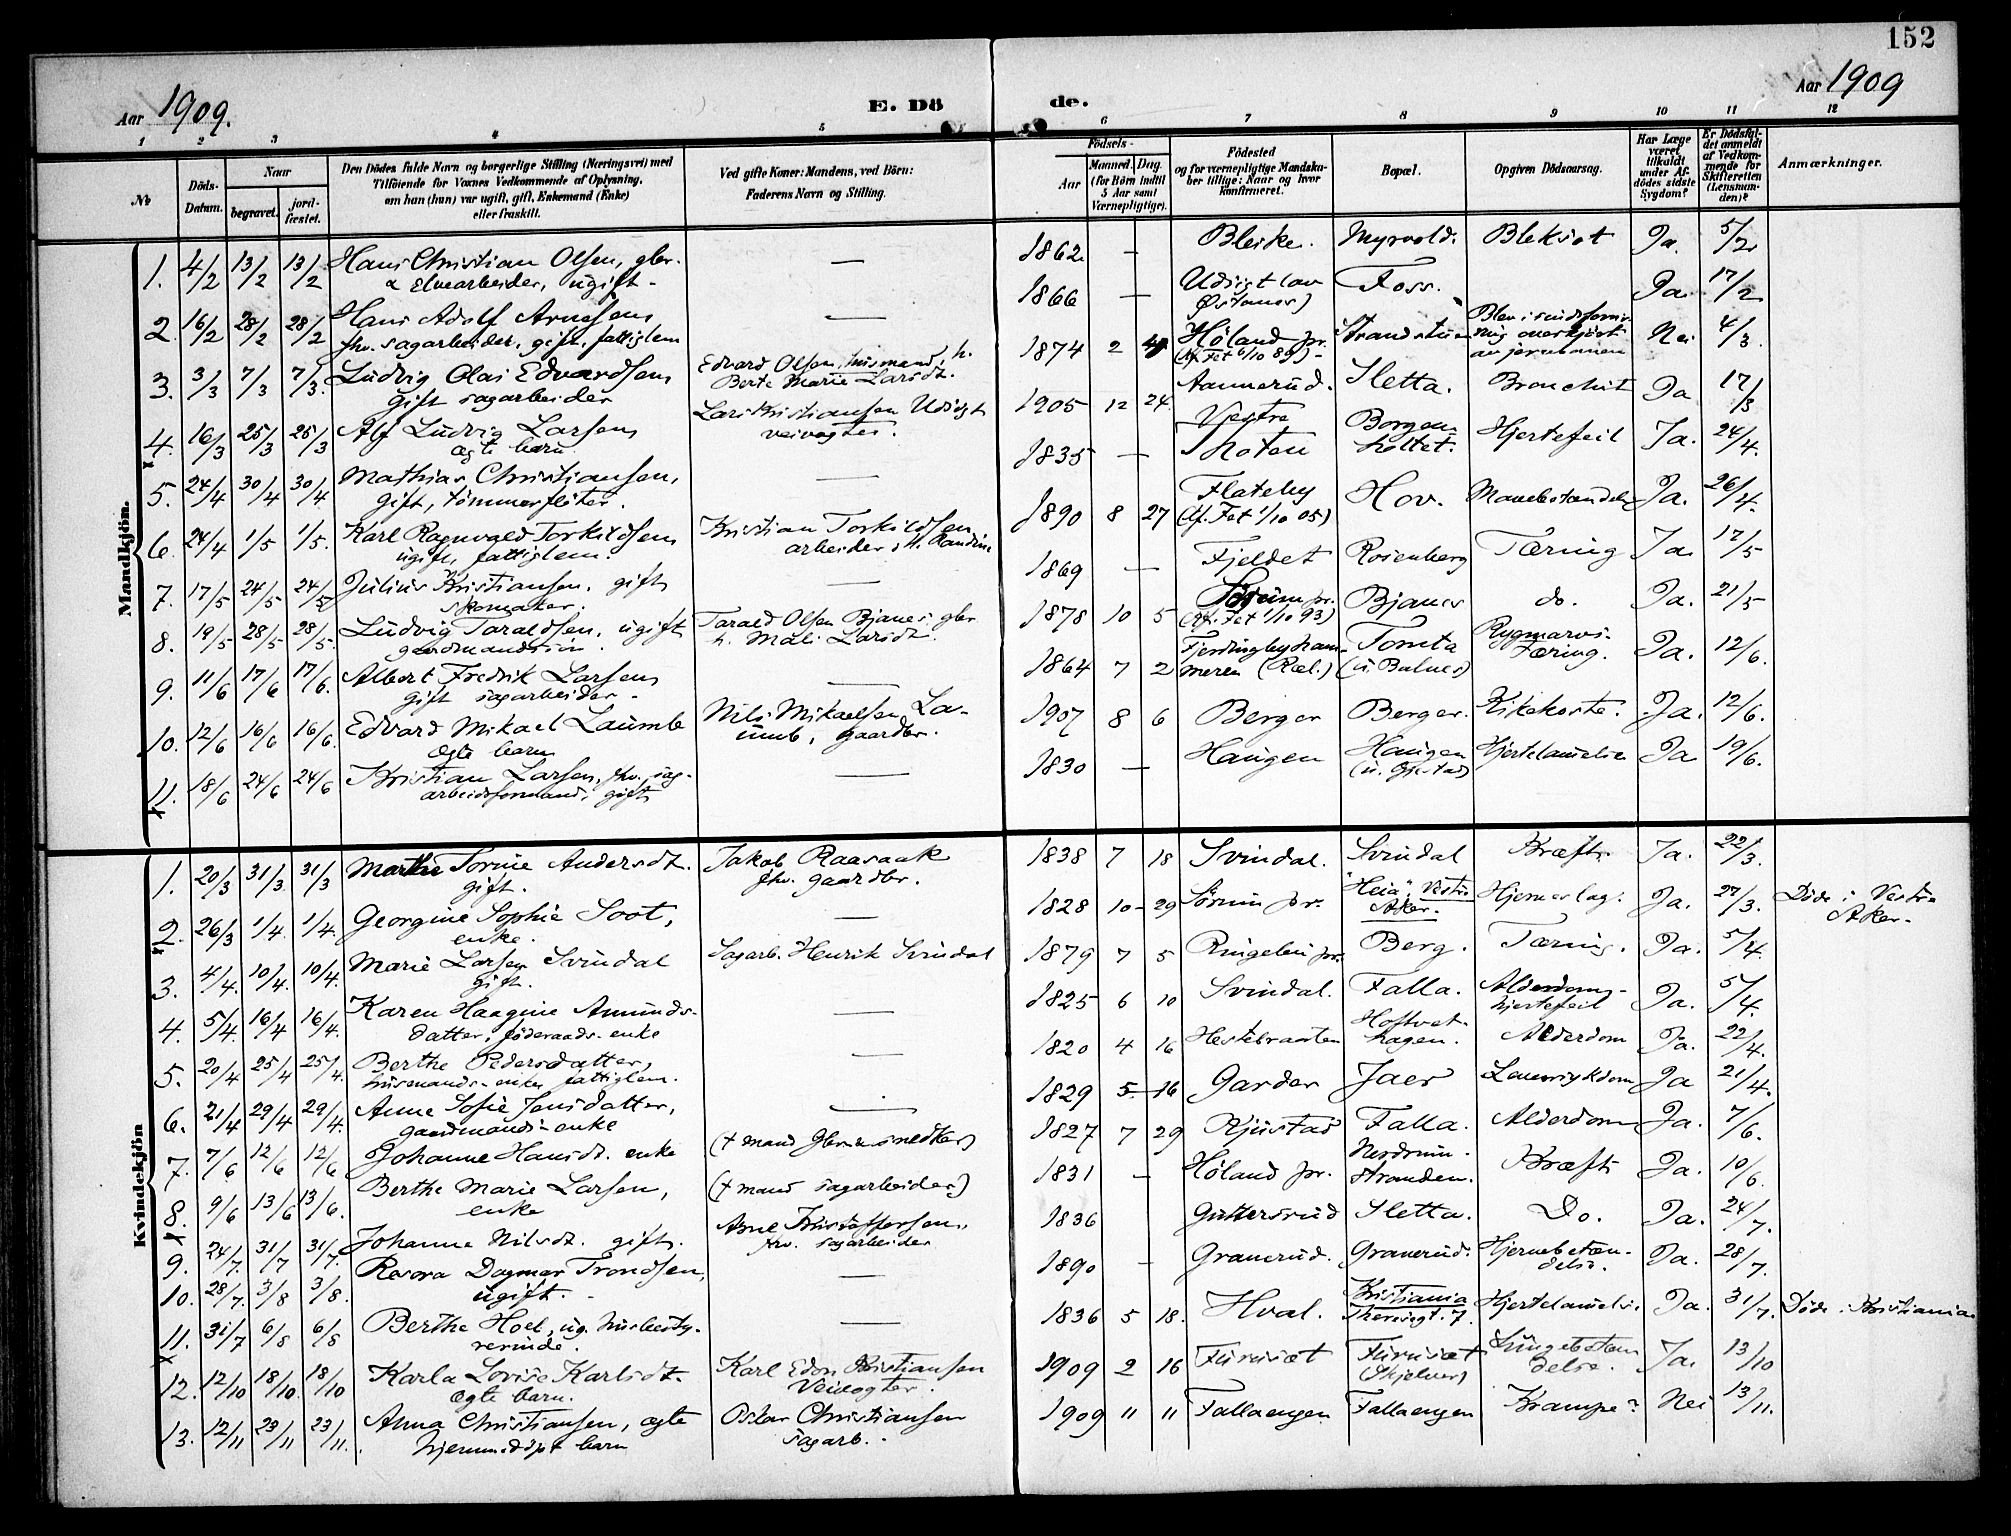 152
Aar 1909.
E. Dö
de.
Aar 1909
1 2 3 4 5 6 7 8 9 10 11 12
No
Döds-Datum.
Naar
begravet.
jordfæstet.
Den Dödes fulde Navn og borgerlige Stilling (Næringsvei) med
Tilföiende for Voxnes Vedkommende af Oplysning,
om han (hun) var ugift, gift, Enkemand (Enke)
eller fraskilt.
Ved gifte Koner: Mandens, ved Börn:
Faderens Navn og Stilling.
Födsels-
Aar
Maaned. Dag.
(for Börn indtil
5 Aar samt
Værnepligtige).
Födested
og for værnepligtige Mandska-
ber tillige: Naar og hvor
konfirmeret.
Bopæl.
Opgiven Dödsaarsag.
Har Læge
været
tilkaldt
under Af-
dödes sidste
Sygdom?
Er Dödsfal-
det anmeldt
af Vedkom-
mende for
Skifteretten
(Lensman-
den)?
Anmærkninger.
Mandkjön.
1. 4/2 13/2 13/2 Hans Christian Olsen, gbr. — 1862 — Bleike. Myrvold. Bleksot Ja. 5/2
& elvearbeider, ugift.
2. 16/2 28/2 28/2 Hans Adolf Arnesen — 1866 — Foss. Ja 17/2
fhv. sagarbeider, gift, fattiglem
3. 3/3 7/3 7/3. Ludvig Olai Edvardsen Edvard Olsen, husmand, h. 1874 2 Høland pr. Strandstuen Nei 4/3.
gift sagarbeider Berte Marie Larsdt. (kf. Fet 6/10 89) av jernbanen
4. 16/3 25/3 25/3 Alf Ludvig Larsen Lars Kristiansen 1905 12 24 Aannerud. Sletta. Bronchit Ja 17/3
ægte barn veivogter.
5. 24/4 30/4 30/4 Mathias Christiansen, — 1835 — Vestre Toten Hjertefeil Ja. 24/4.
gift, tømmerfløter.
6. 24/4 1/5 1/5. Karl Ragnvald Torkildsen Kristian Torkildsen 1890 8 27 Flateby Hov. Ja. 26/4.
ugift, fattiglem. arbeider, h. Randine (kf. Fet 1/10 05)
7. 17/5 24/5 24/5 Julius Kristiansen. gift — 1869 — Fjeldet Rosenberg Tæring Ja 17/5
skomaker.
8. 19/5 28/5 28/5. Ludvig Taraldsen. ugift Tarald Olsen Bjanes gbr 1878 10 5 Sørum pr. Bjanes do. Ja. 21/5
gaardmandssøn. h. Mali Larsdt. (kf. Fet 1/10 93)
9. 11/6 17/6 17/6. Albert Fredrik Larsen — 1864 7 2 Fjerdingbyham- Tomta Rygmarvs- Ja. 12/6.
gift sagarbeider. meren (Ræl.) tæring.
10. 12/6 16/6 16/6. Edvard Mikael Laumb Nils Mikaelsen La- 1907 8 6 Berger Berger. Kikhoste. Ja. 12/6.
ægte barn umb, gaardbr.
11. 18/6 24/6 24/6 Kristian Larsen, fhv. sag- — 1830 — Haugen Haugen Hjertelamelse Ja 19/6.
arbeidsformand, gift
Kvindekjön
1. 20/3 31/3. 31/3 Marthe Torine Andersdt. Jakob Raasaak 1838 7 18 Svindal. Svindal Kræft. Ja. 22/3.
gift. fhv. gaardbr.
2. 26/3 1/4. 1/4. Georgine Sophie Soot, — 1828 10 29 Sørum pr. "Heia", Vestre Aker. Hjerneslag. Ja. 27/3. Døde i Vestre Aker.
enke.
3. 4/4. 10/4. 10/4. Marie Larsen Svindal Sagarb. Henrik Svindal 1879 7 5 Ringebu pr. Berg. Tæring. Ja. 5/4.
gift.
4. 5/4. 16/4 16/4. Karen Haagine Amunds- — 1825 6 10 Svindal. Falla. Alderdoms- Ja. 5/4.
datter, føderaads-enke hjertefeil
5. 20/4 25/4 25/4. Berthe Pedersdatter, — 1820 4 16 Hestebraaten Alderdom Ja. 22/4.
husmands-enke, fattiglem.
6. 21/4 29/4 29/4. Anne Sofie Jensdatter, — 1829 5 16 Garder Jaer Ja 21/4.
gaardmands-enke
7. 7/6 12/6 12/6 Johanne Hansdt. enke 1827 7 29 Kjustad Falla. Alderdom Ja. 7/6.
8. 9/6 13/6 13/6. Berthe Marie Larsen, († mand sagarbeider) 1831 — Høland pr. stranden. Kræft Ja. 10/6.
enke
9. 24/7. 31/7 31/7. Johanne Nilsdt. gift. Arne Kristoffersen, 1836 Guttersrud Sletta. Do. Ja. 24/7.
fhv. sagarbeider
10. 28/7. 3/8 3/8. Dagmar Trondsen, — 1890 - Granerud. Granerud. Hjernebetæn- Ja. 28/7.
ugift. delse.
11. 31/7 6/8 6/8 Berthe Hoel, ug. husbesty- — 1836 5 18. Hval. Kristiania Hjertelamelse Ja. 31/7. Døde i Kristiania
rerinde. Theresegt. 7.
12. 12/10 18/10. 18/10 Karla Lovise Karlsdt. Karl Kristiansen 1909 2 16 Furusæt Furusæt Lungebetæn- Ja. 13/10
ægte barn. Veivogter. delse.
13. 12/11 23/11 23/11. Anna Christiansen, ægte Oskar Christiansen 1909 11 11 Fallaengen Fallaengen Krampe? Nei 13/11.
hjemmedøpt barn sagarb.